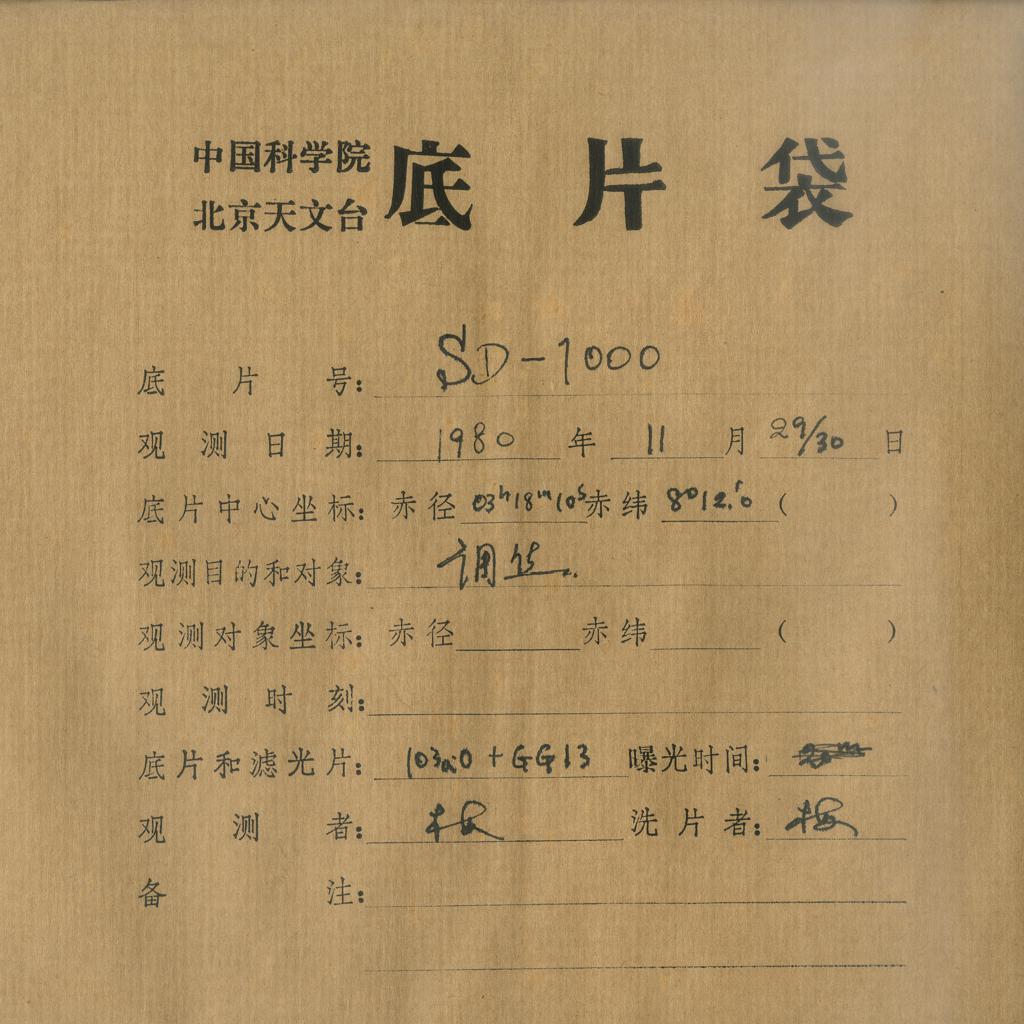 中国科学院
北京天文台 底片袋
底片号: SD-1000
观测日期: 1980 年 11 月 29/30 日
底片中心坐标: 赤径 03h18m10s 赤纬 8°12.'0 ( )
观测目的和对象: 调焦.
观测对象坐标: 赤径 赤纬 ( )
观测时刻:
底片和滤光片: 103aO + GG13 曝光时间:
观测者: 梅 洗片者: 梅
备注: